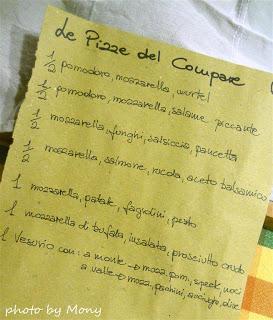 Le Pizze del Compare
1/2 pomodoro, mozzarella, wurtel
1/2 pomodoro, mozzarella, salame piccante
1/2 mozzarella, funghi, salsiccia, pancetta
1/2 mozzarella, salmone, rucola, aceto balsamico
1 mozzarella, patate, fagiolini, pesto
1 mozzarella di bufala, insalata, prosciutto crudo
1 Vesuvio con: a monte → mozz, pom, speck, noci
a valle → mozz, pachini, acciughe, olive
photo by Mony